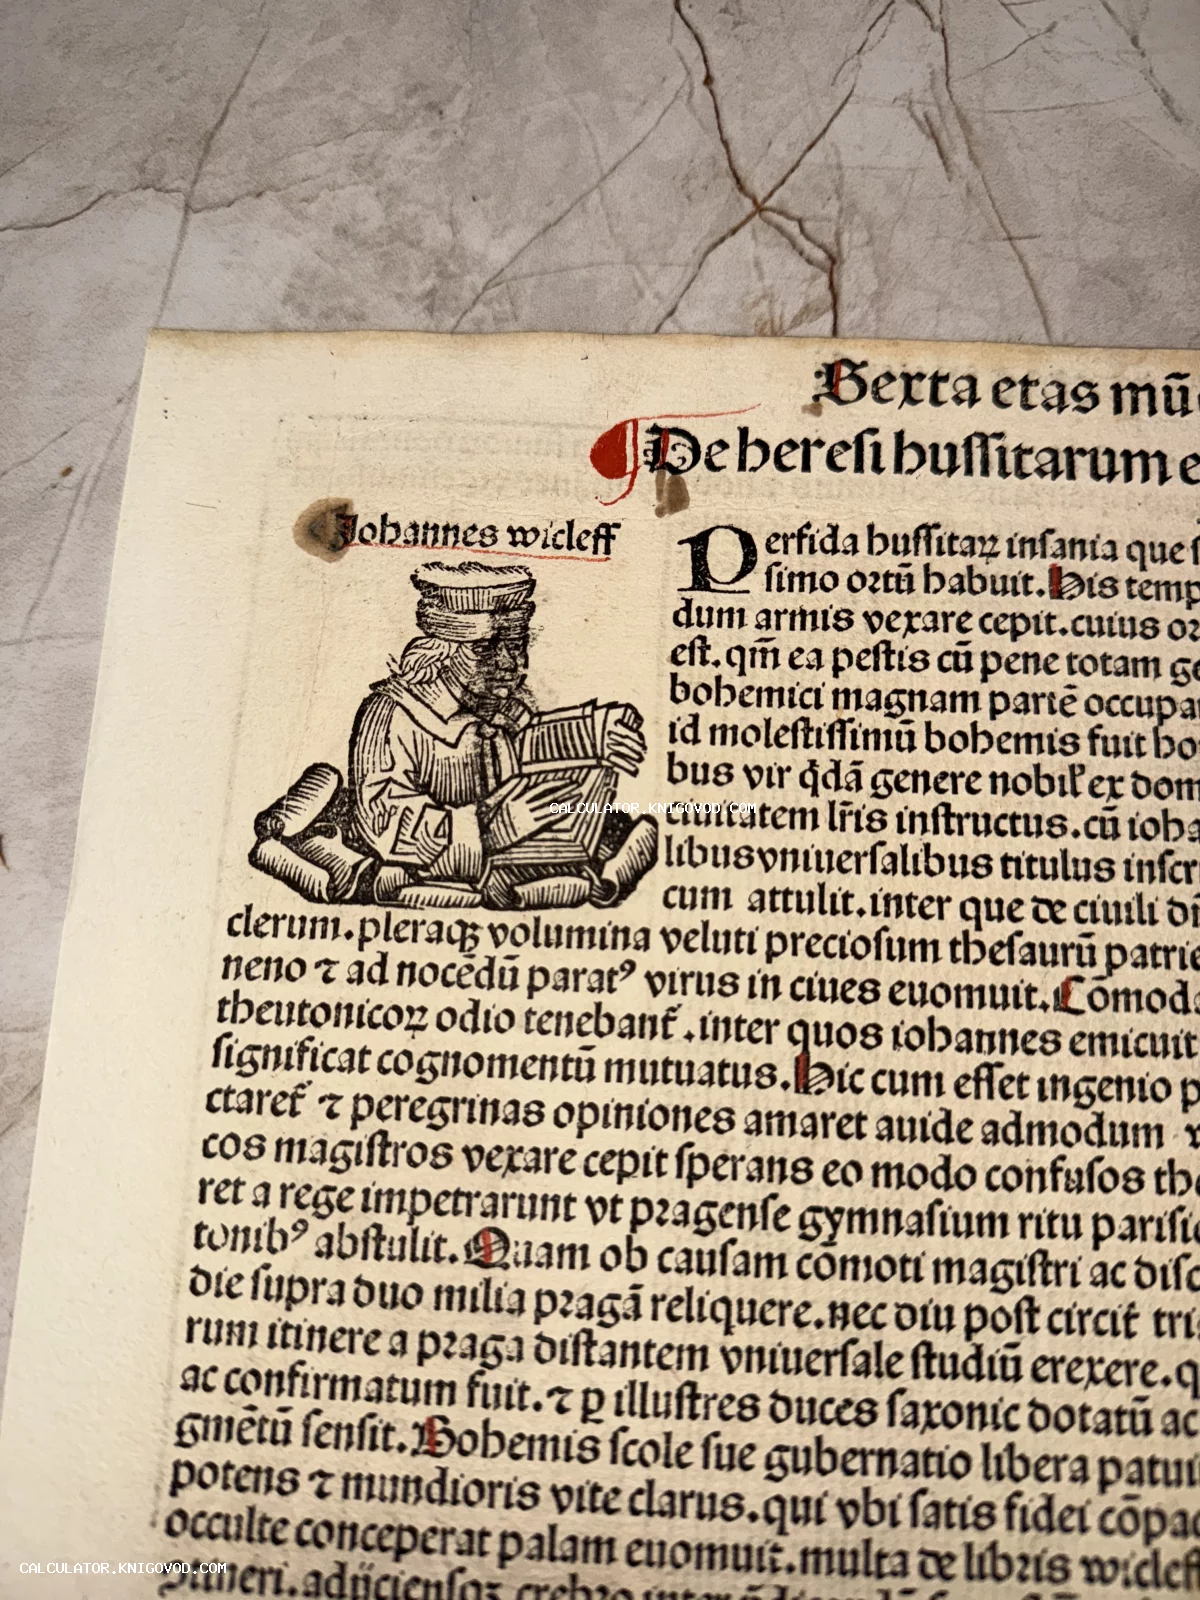 Sexta etas mū
De heresi hussitarum e
Johannes wicleff
Perfida hussitaꝝ insania que s
simo ortū habuit. His temp
dum armis vexare cepit. cuius or
est. qm̄ ea pestis cū pene totam ge
bohemici magnam partē occupa
id molestissimū bohemis fuit ho
bus vir q̇dā genere nobil' ex dom
ciuitatem lr̄is instructus. cū ioha
libus vniuersalibus titulus inscri
cum attulit. inter que de ciuili dn̄
clerum. pleraqꝫ volumina veluti preciosum thesaurū patrie
neno ⁊ ad nocēdū paratꝰ virus in ciues euomuit. Cōmoda
theutonicoꝝ odio tenebant̄. inter quos iohannes emicuit
significat cognomentū mutuatus. Hic cum esset ingenio p
ctaret̄ ⁊ peregrinas opiniones amaret auide admodum
cos magistros vexare cepit sperans eo modo confusos the
ret a rege impetrarunt vt pragense gymnasium ritu parisi
tonibꝰ abstulit. Quam ob causam cōmoti magistri ac disc
die supra duo milia pragā reliquere. nec diu post circit̄ tri
rum itinere a praga distantem vniuersale studiū erexere. q
ac confirmatum fuit. ⁊ ꝑ illustres duces saxonie dotatū ac
gmētū sensit. Bohemis scole sue gubernatio libera patui
potens ⁊ mundioris vite clarus. qui vbi satis fidei cōpa
occulte conceperat palam euomuit. multa de libris wicleff
CALCULATOR.KNIGOVOD.COM
CALCULATOR.KNIGOVOD.COM